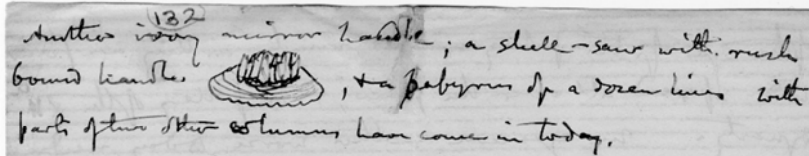 132
Another ivory mirror handle; a shell-saw with rush
bound handle , & a papyrus of a dozen lines with
parts of two other columns have come in today.